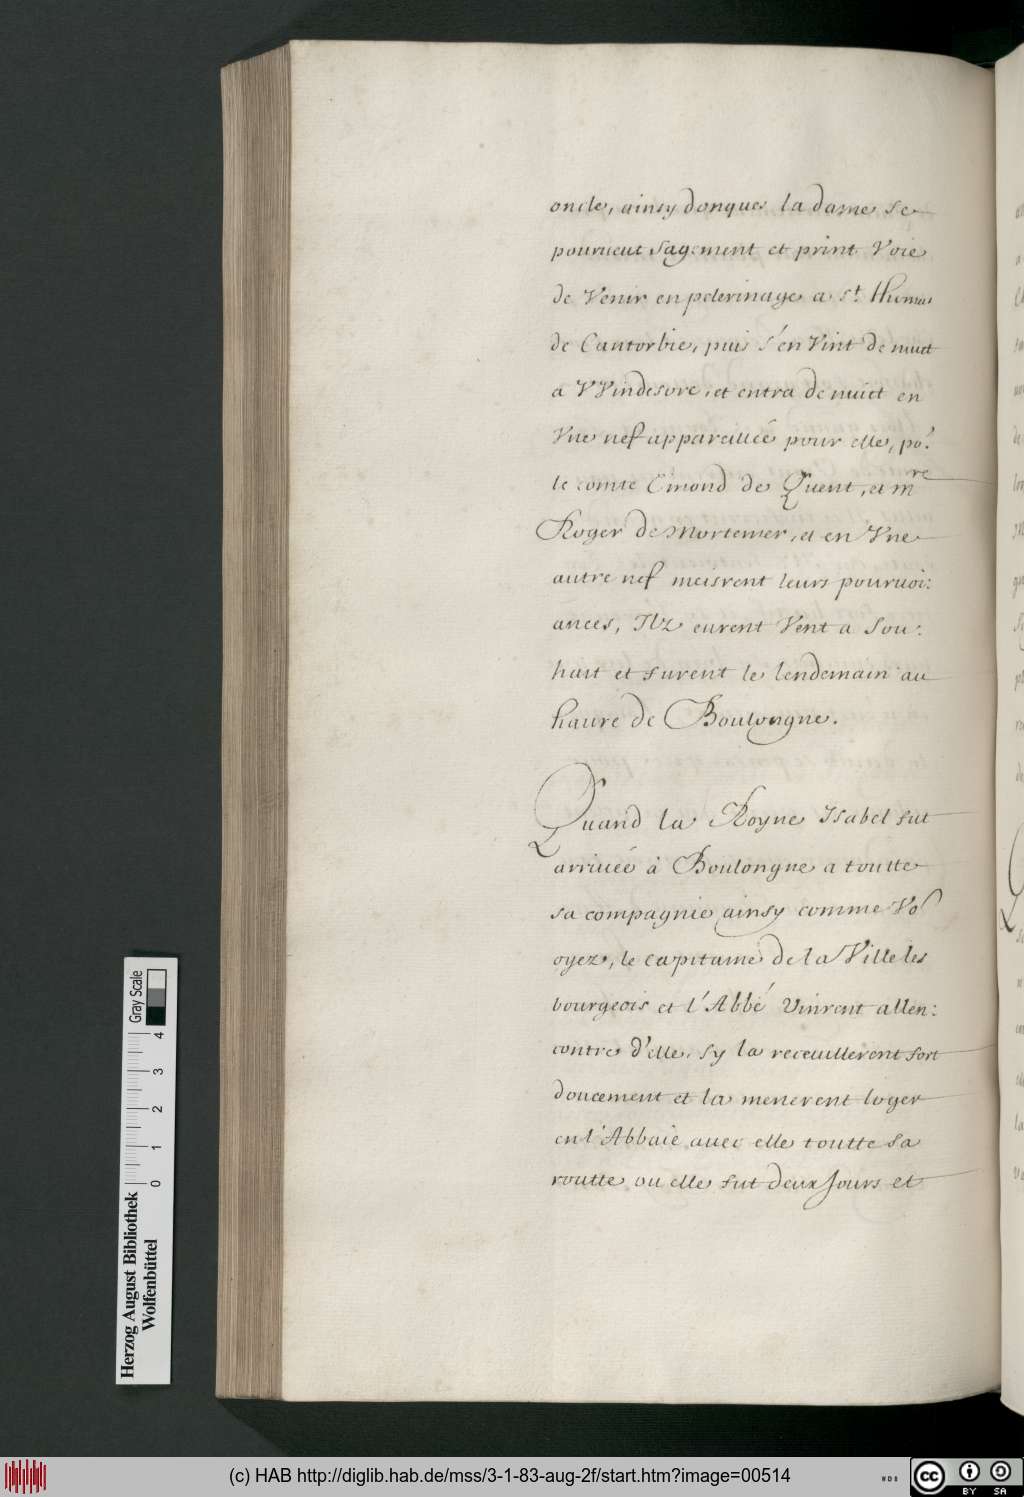 oncle, ainsy donques la dame se
pourueut sagement et print Voie
de Venir en pelerinage a s.t Thumas
de Cantorbie, puis s'en Vint de nuict
a VVindesore, et entra de nuict en
Vne nef appareillée pour elle, po.r
le comte Emond de Quent, et m.re
Roger de Mortemer, et en Vne
autre nef meisrent leurs pouruoi:
ances, Ilz eurent Vent a Sou:
hait et furent le lendemain au
haure de Boulongne.
Quand la Royne Isabel fut
arriuée à Boulongne a toutte
sa compagnie ainsy comme Vo
oyez, le capitaine de la Ville les
bourgeois et l'Abbé Vinrent allen:
contre d'elle, sy la receuillerent fort
doucement et la menerent loger
en l'Abbaie auec elle toutte sa
routte ou elle fut deux Jours et
Herzog August Bibliothek
Wolfenbüttel
0 1 2 3 4
Gray Scale
(c) HAB http://diglib.hab.de/mss/3-1-83-aug-2f/start.htm?image=00514
WDB
cc BY SA